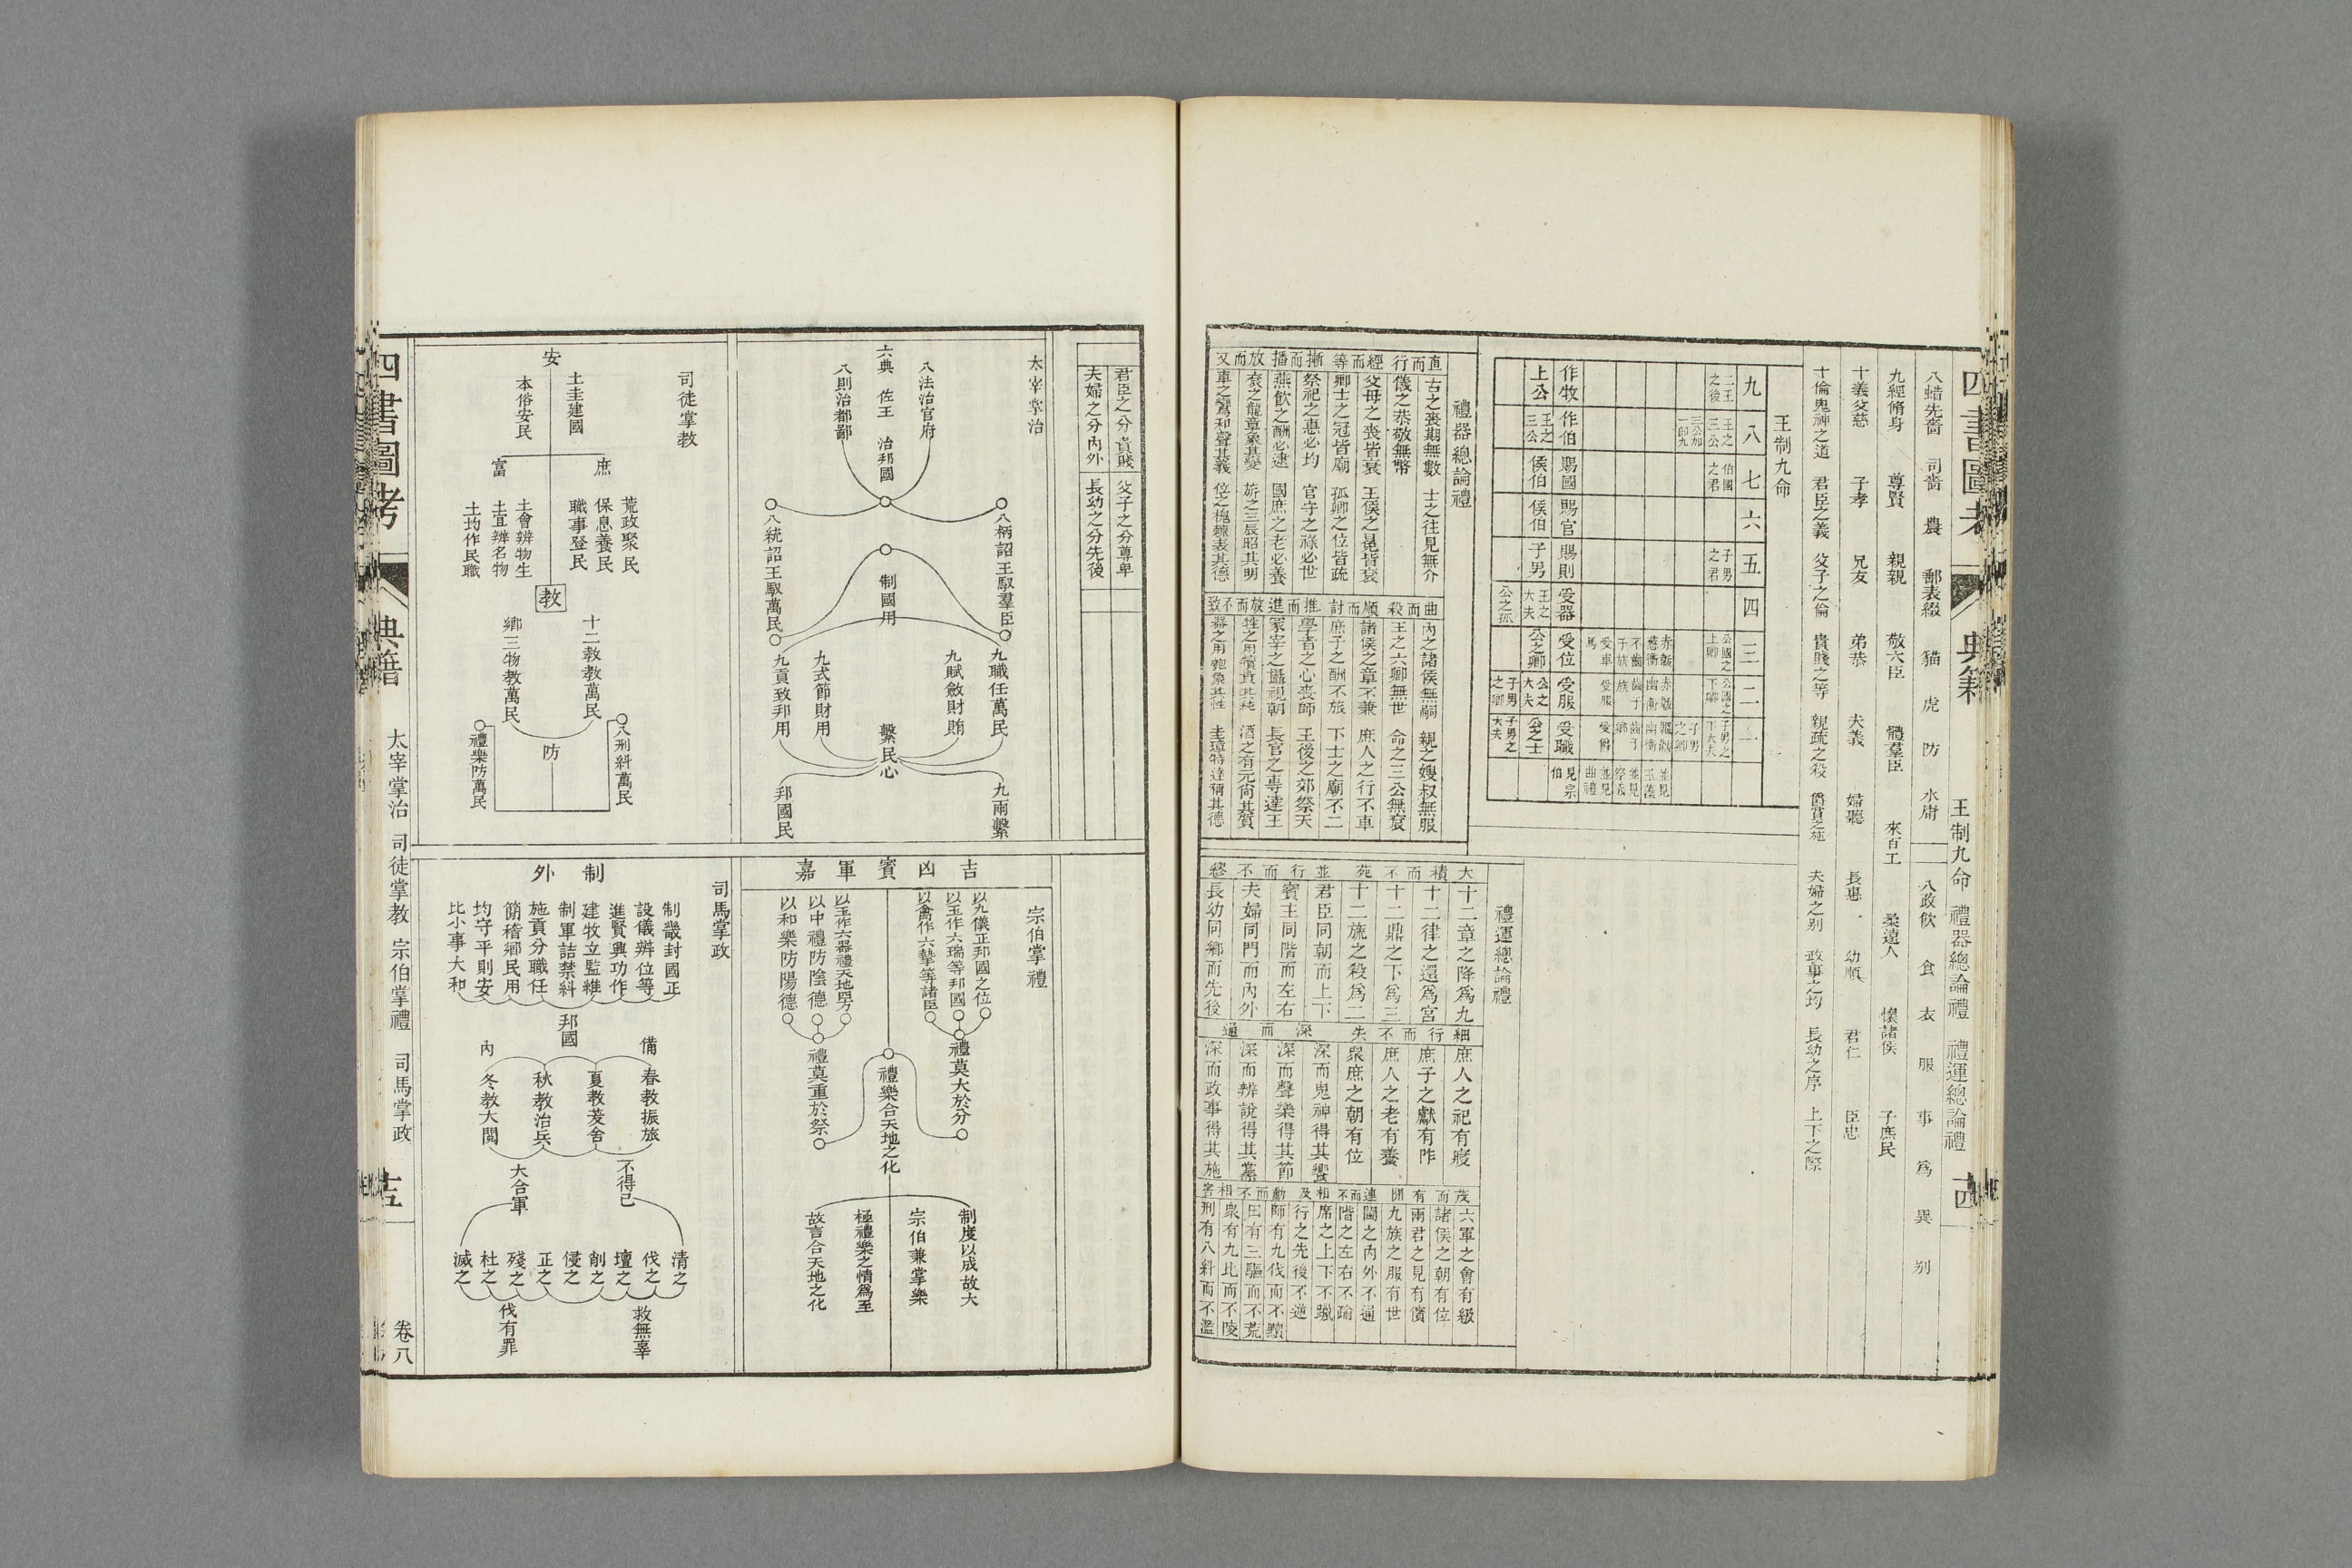 四書圖考
典籍
王制九命 禮器總論禮 禮運總論禮
八蜡先嗇 司嗇 農 郵表綴 貓 虎 防 水庸
八政飲 食 衣 服 事 為 異 别
九經脩身 尊賢 親親 敬大臣 體羣臣 來百工 柔遠人 懷諸侯 子庶民
十義父慈 子孝 兄友 弟恭 夫義 婦聽 長惠 幼順 君仁 臣忠
十倫鬼神之道 君臣之義 父子之倫 貴賤之等 親疏之殺 爵賞之施 夫婦之别 政事之均 長幼之序 上下之際
王制九命
九 八 七 六 五 四 三 二 一
二王之後
王之三公
伯國之君
子男之君
公國之上卿
公國之下卿
子男之下大夫
三公加一命九
作牧 作伯 賜國 賜官 賜則 受器 受位 受服 受職
上公
王之三公
侯伯
侯伯
子男
王之大夫
公之孤
公之卿
公之大夫
子男之卿
公之士
子男之大夫
見宗伯
禮器總論禮
直而行 經而等 摲而播 放而文
古之喪期無數 士之往見無介
儀之恭敬無幣
父母之喪皆衰 王侯之冕皆袞
卿士之冠皆廟 孤卿之位皆疏
祭祀之惠必均 官守之祿必世
燕飲之酬必逮 國庶之老必養
袞之龍章象其變 旂之三辰昭其明
車之鸞和聲其義 位之槐棘表其德
曲而殺 順而討 推而進 放而不致
內之諸侯無嗣 親之嫂叔無服
王之六卿無世 命之三公無袞
諸侯之章不兼 庶人之行不車
庶子之酬不旅 下士之廟不二
學者之心喪師 王後之郊祭天
冢宰之攝視朝 長官之專達王
牲之用犢貴其純 酒之有元尚其質
器之用匏象其性 圭璋特達稱其德
禮運總論禮
大積而不苑 並行而不繆
十二章之降為九
十二律之還為宮
十二鼎之下為三
十二旒之殺為二
君臣同朝而上下
賓主同階而左右
夫婦同門而內外
長幼同鄉而先後
細行而不失 深而通
庶人之祀有寢
庶子之獻有阼
庶人之老有養
衆庶之朝有位
深而鬼神得其饗
深而聲樂得其節
深而辨說得其黨
深而政事得其施
茂而有閒 連而不相及 動而不相害
六軍之會有級
諸侯之朝有位
兩君之見有儐
九族之服有世
閫之內外不通
階之左右不踰
席之上下不躐
行之先後不逆
師有九伐而不黷
田有三驅而不荒
衆有九比而不陵
刑有八糾而不濫
君臣之分貴賤 父子之分尊卑
夫婦之分內外 長幼之分先後
太宰掌治
八法治官府
六典 佐王 治邦國
八則治都鄙
八柄詔王馭羣臣
制國用
八統詔王馭萬民
九職任萬民
九賦斂財賄
繫民心
九式節財用
九貢致邦用
九兩繫
邦國民
司徒掌教
安
土圭建國
本俗安民
庶
富
荒政聚民
保息養民
職事登民
土會辨物生
土宜辨名物
土均作民職
教
十二教教萬民
鄉三物教萬民
八刑糾萬民
防
禮樂防萬民
宗伯掌禮
吉 凶 賓 軍 嘉
以九儀正邦國之位
以玉作六瑞等邦國
以禽作六摯等諸臣
以玉作六器禮天地四方
以中禮防陰德
以和樂防陽德
禮莫大於分
禮樂合天地之化
禮莫重於祭
制度以成故大
宗伯兼掌樂
極禮樂之情為至
故言合天地之化
司馬掌政
制 外
制畿封國正
設儀辨位等
進賢興功作
建牧立監維
制軍詰禁糾
施貢分職任
簡稽鄉民用
均守平則安
比小事大和
邦國
備
內
春教振旅
夏教茇舍
秋教治兵
冬教大閱
不得已
大合軍
清之
伐之
壇之
削之
侵之
正之
殘之
杜之
滅之
救無辜
伐有罪
四書圖考
典籍
太宰掌治 司徒掌教 宗伯掌禮 司馬掌政
卷八